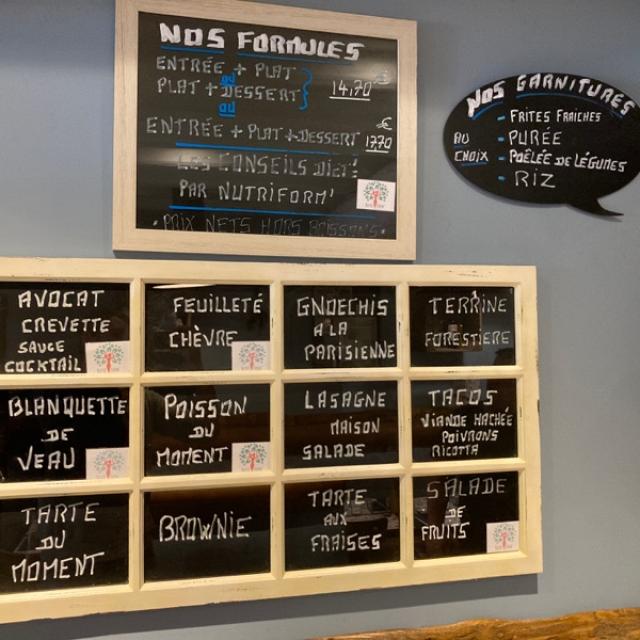 NOS FORMULES
ENTRÉE + PLAT
ou
PLAT + DESSERT
14,70 €
ou
ENTRÉE + PLAT + DESSERT 17,70 €
LES CONSEILS DIET!
PAR NUTRIFORM'
*PRIX NETS HORS BOISSONS*
NOS GARNITURES
AU CHOIX
- FRITES FRAICHES
- PURÉE
- POÊLÉE DE LÉGUMES
- RIZ
AVOCAT
CREVETTE
SAUCE
COCKTAIL
FEUILLETÉ
CHÈVRE
GNOECHIS
A LA
PARISIENNE
TERRINE
FORESTIERE
BLANQUETTE
DE
VEAU
POISSON
DU
MOMENT
LASAGNE
MAISON
SALADE
TACOS
VIANDE HACHÉE
POIVRONS
RICOTTA
TARTE
DU
MOMENT
BROWNIE
TARTE
AUX
FRAISES
SALADE
DE
FRUITS